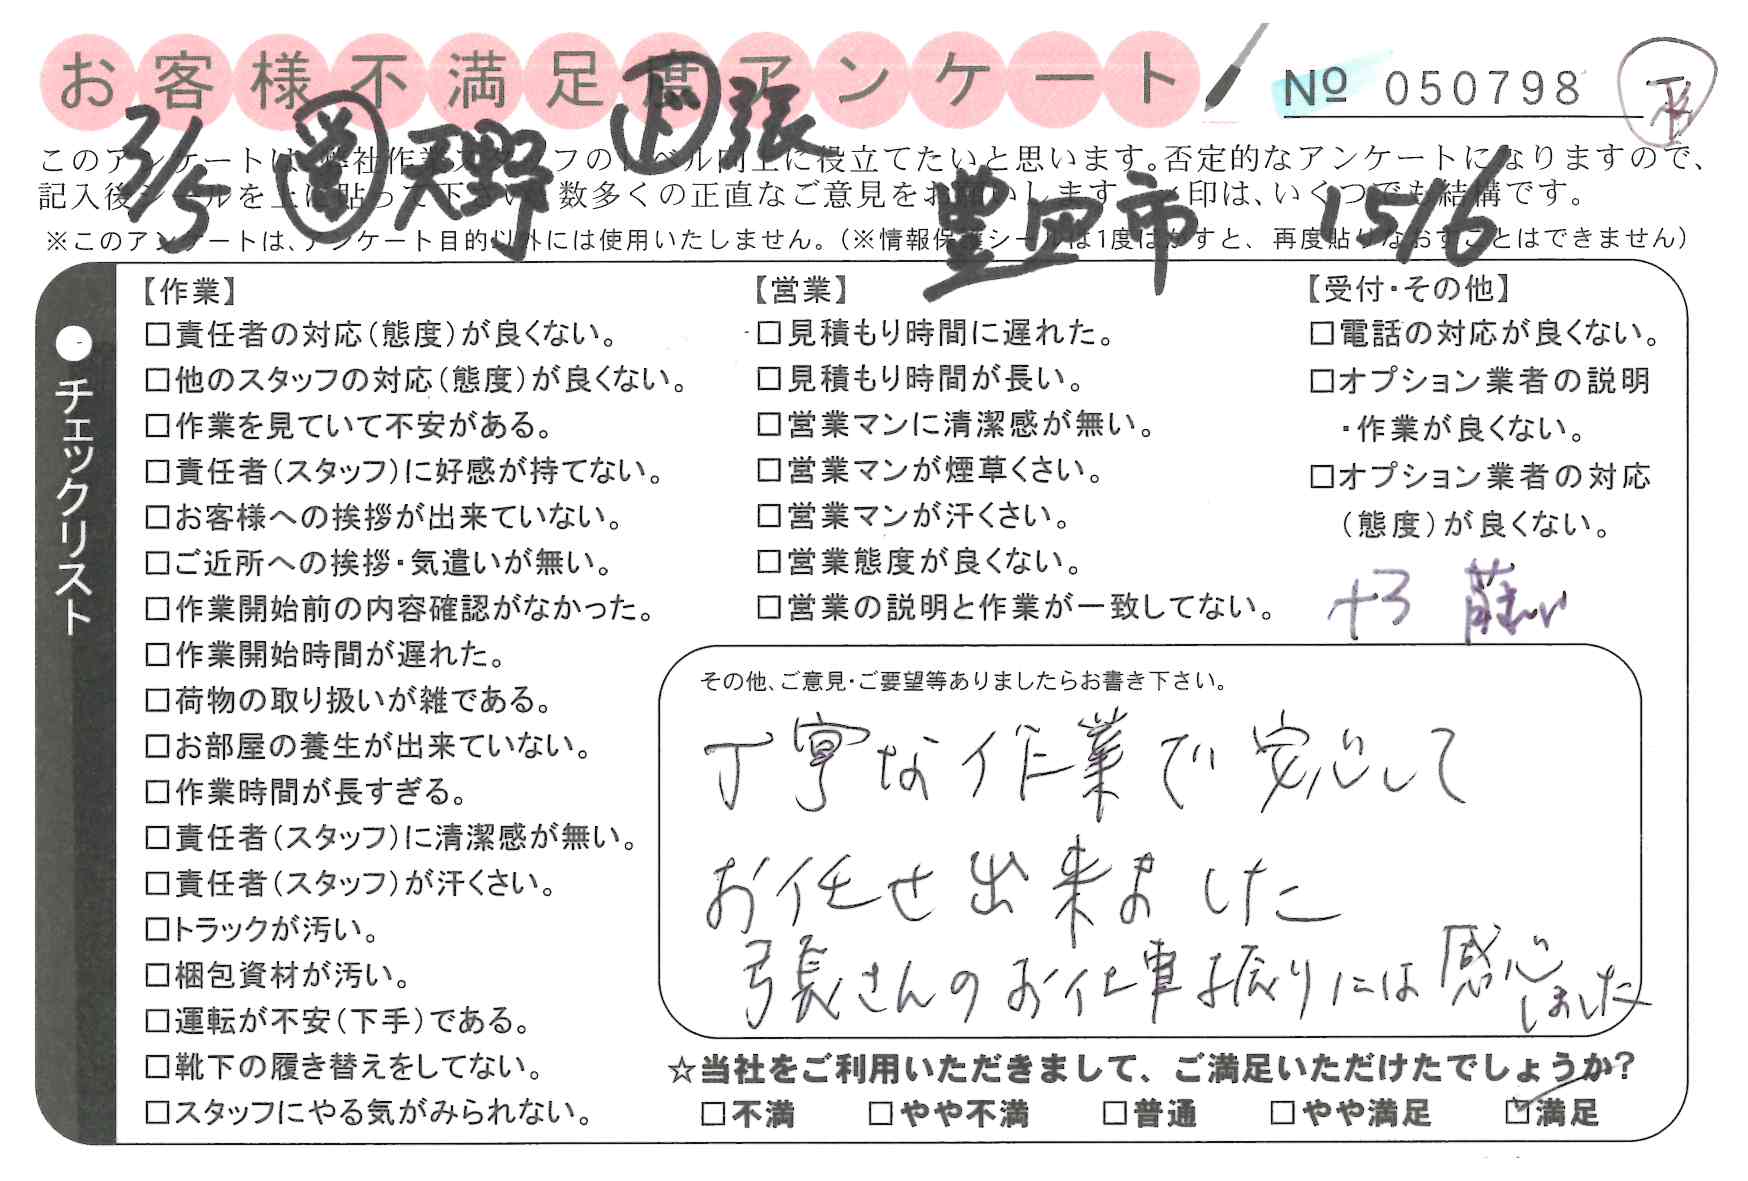 お客様不満足度アンケート
№ 050798
2/5 営 天野 下 張
豊田市 1516
このアンケートは、弊社作業スタッフのレベル向上に役立てたいと思います。否定的なアンケートになりますので、
記入後シールを上に貼って下さい。数多くの正直なご意見をお願いします。✓印は、いくつでも結構です。
※このアンケートは、アンケート目的以外には使用いたしません。(※情報保護シールは1度はがすと、再度貼りなおすことはできません)
●チェックリスト
【作業】
□責任者の対応(態度)が良くない。
□他のスタッフの対応(態度)が良くない。
□作業を見ていて不安がある。
□責任者(スタッフ)に好感が持てない。
□お客様への挨拶が出来ていない。
□ご近所への挨拶・気遣いが無い。
□作業開始前の内容確認がなかった。
□作業開始時間が遅れた。
□荷物の取り扱いが雑である。
□お部屋の養生が出来ていない。
□作業時間が長すぎる。
□責任者(スタッフ)に清潔感が無い。
□責任者(スタッフ)が汗くさい。
□トラックが汚い。
□梱包資材が汚い。
□運転が不安(下手)である。
□靴下の履き替えをしてない。
□スタッフにやる気がみられない。
【営業】
□見積もり時間に遅れた。
□見積もり時間が長い。
□営業マンに清潔感が無い。
□営業マンが煙草くさい。
□営業マンが汗くさい。
□営業態度が良くない。
□営業の説明と作業が一致してない。
【受付・その他】
□電話の対応が良くない。
□オプション業者の説明
・作業が良くない。
□オプション業者の対応
(態度)が良くない。
+3
その他、ご意見・ご要望等ありましたらお書き下さい。
丁寧な作業で安心して
お任せ出来ました
弓長さんのお仕事振りには感心
しました
☆当社をご利用いただきまして、ご満足いただけたでしょうか?
□不満 □やや不満 □普通 □やや満足 ☑満足